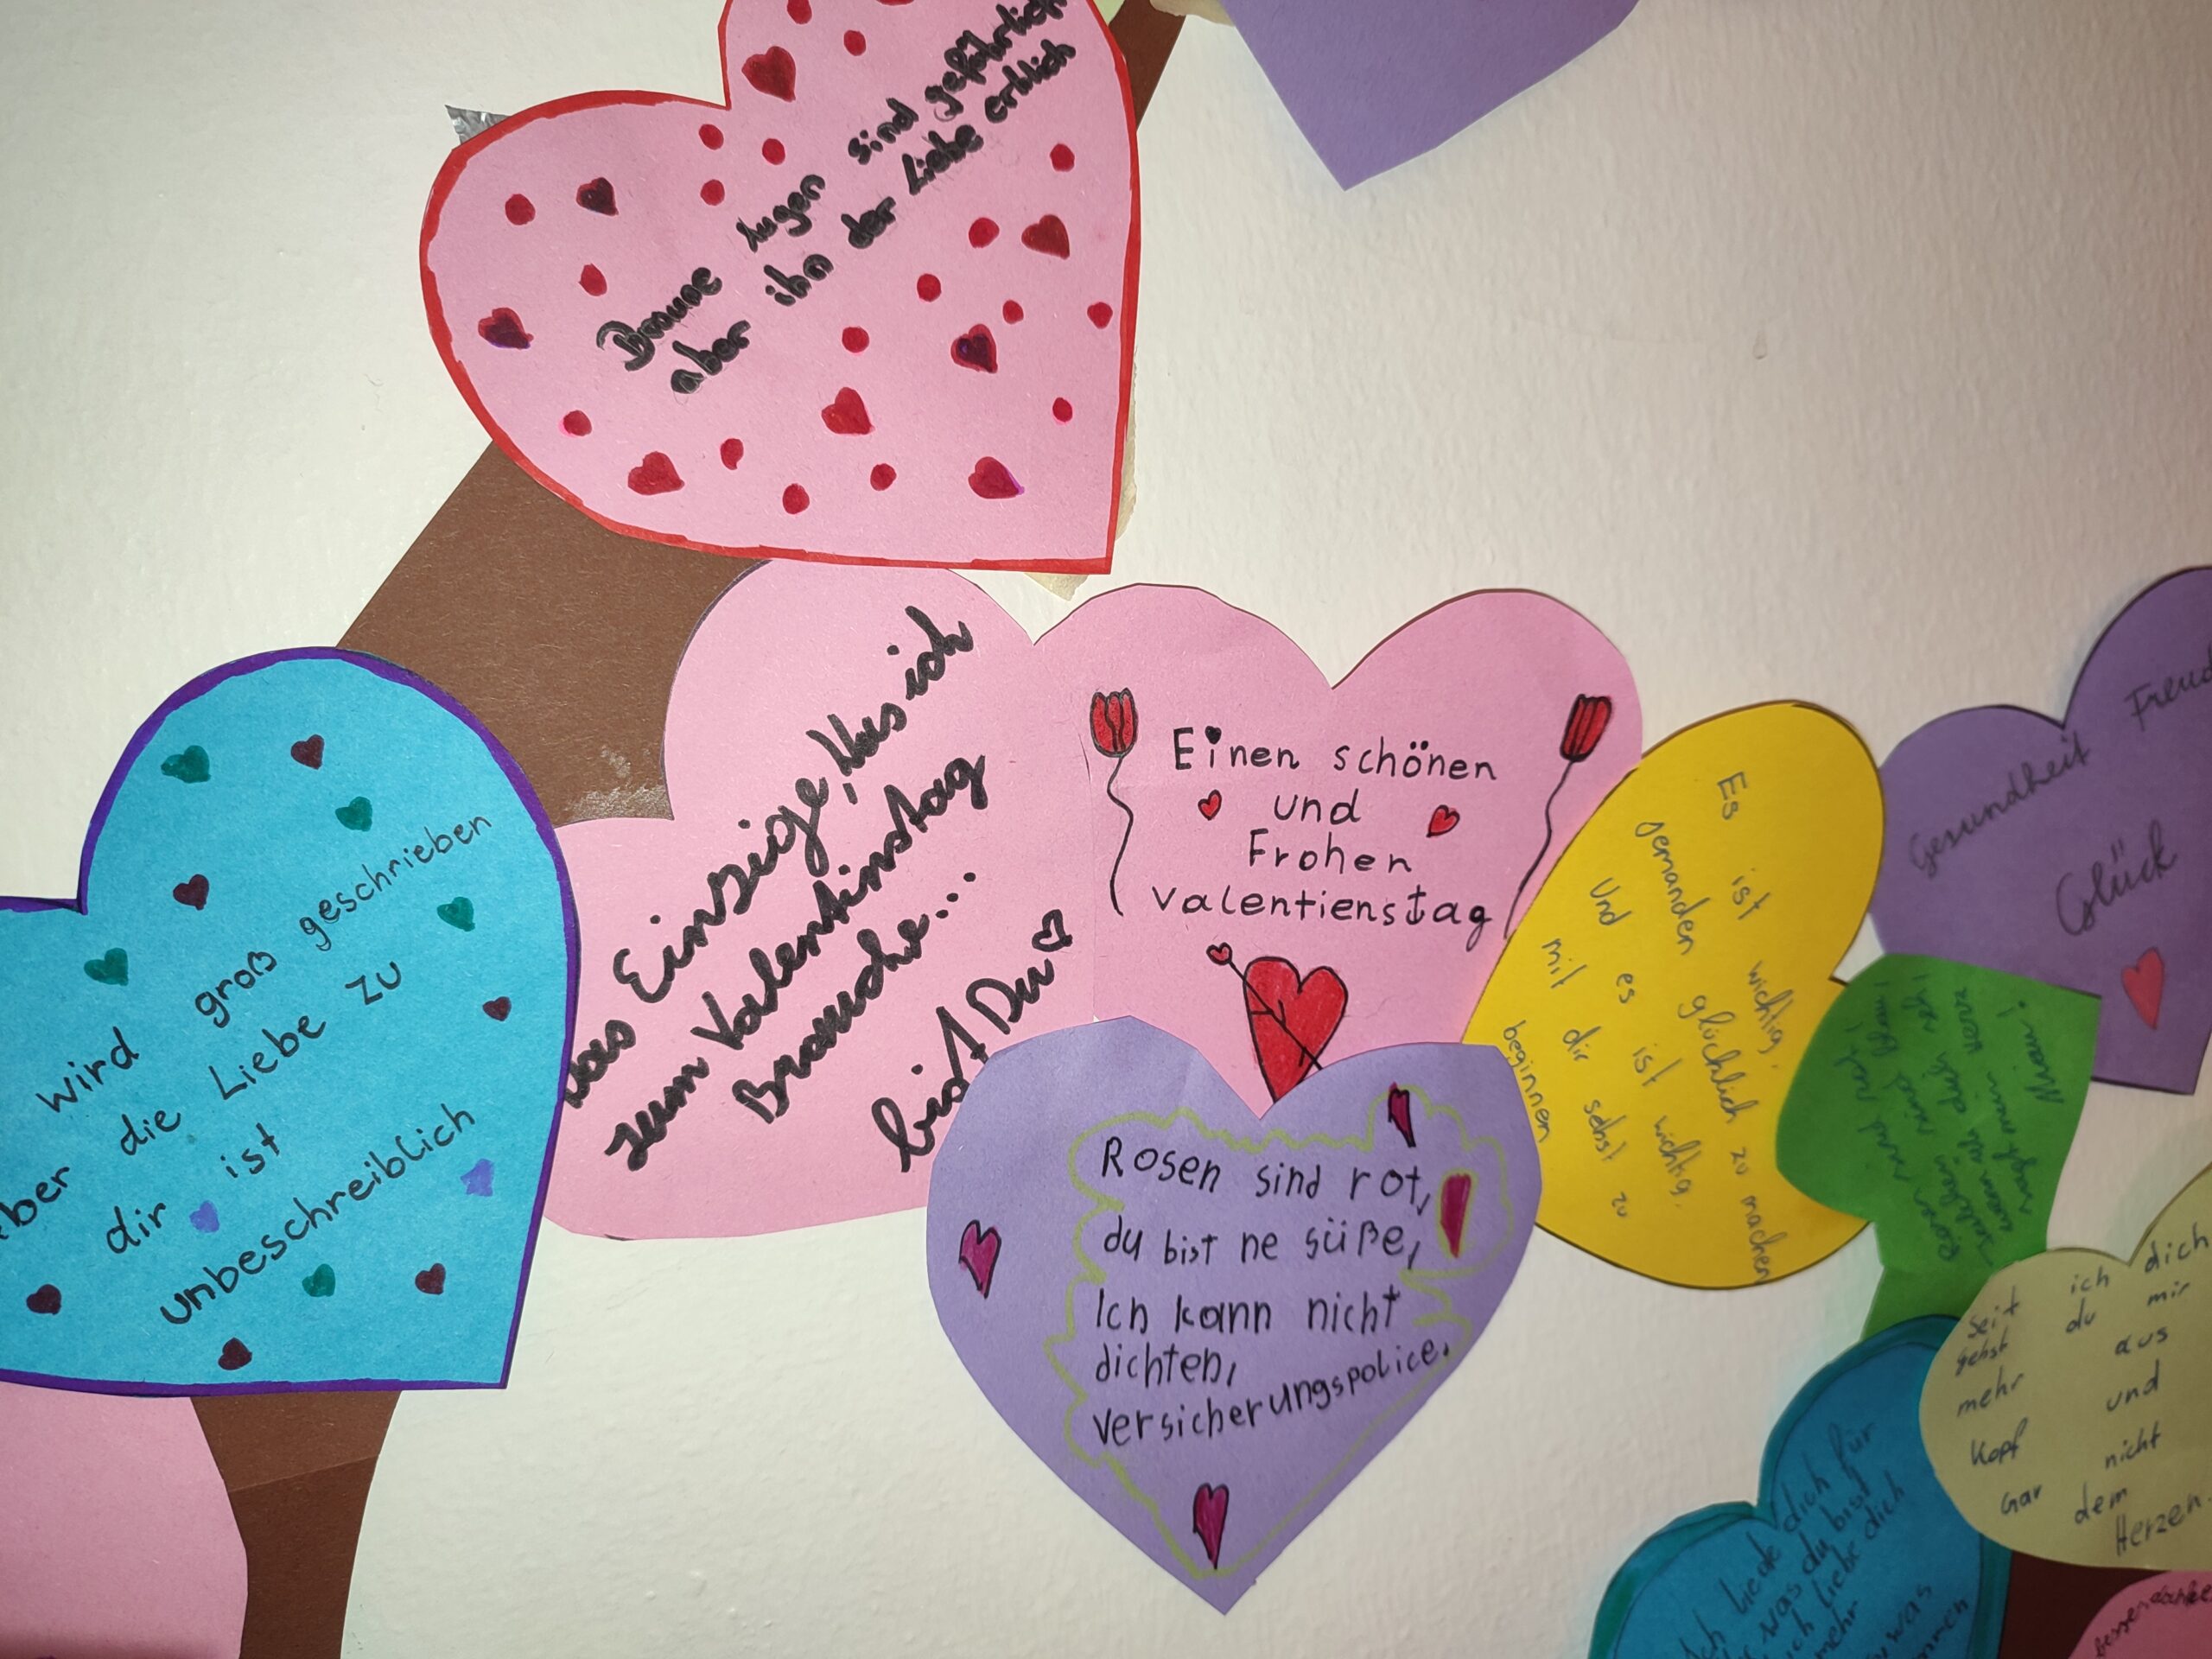 Braune Augen sind gefährlich
aber ihn der Liebe erhlich
wird groß geschrieben
aber die Liebe zu
dir ist
unbeschreiblich
Das Einzige, was ich
zum Valentinstag
Brauche...
bist Du
Einen schönen
und
Frohen
valentienstag
Rosen sind rot,
du bist ne süße,
Ich kann nicht
dichten,
versicherungspolice.
Es ist wichtig,
jemanden glücklich zu machen
Und es ist wichtig,
mit dir selbst zu
beginnen
Gesundheit Freud
Glück
Rosen sind rot,
wenn ich dich seh
sagt mein Herz
Miau!
Seit ich dich
gehst du mir
mehr aus
Kopf und
Gar nicht
dem
Herzen.
Ich liebe dich für
was du bist
ich liebe dich
mehr
was